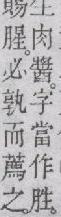 生肉醬字當作胜
賜腥必孰而薦之